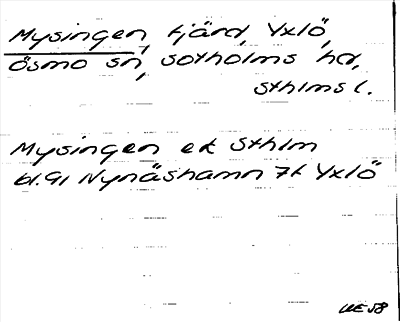 Mysingen, fjärd, Yxlö,
Ösmo sn, Sotholms hd,
Sthlms l.
Mysingen ek Sthlm
bl. 91 Nynäshamn 7f Yxlö
UE 58